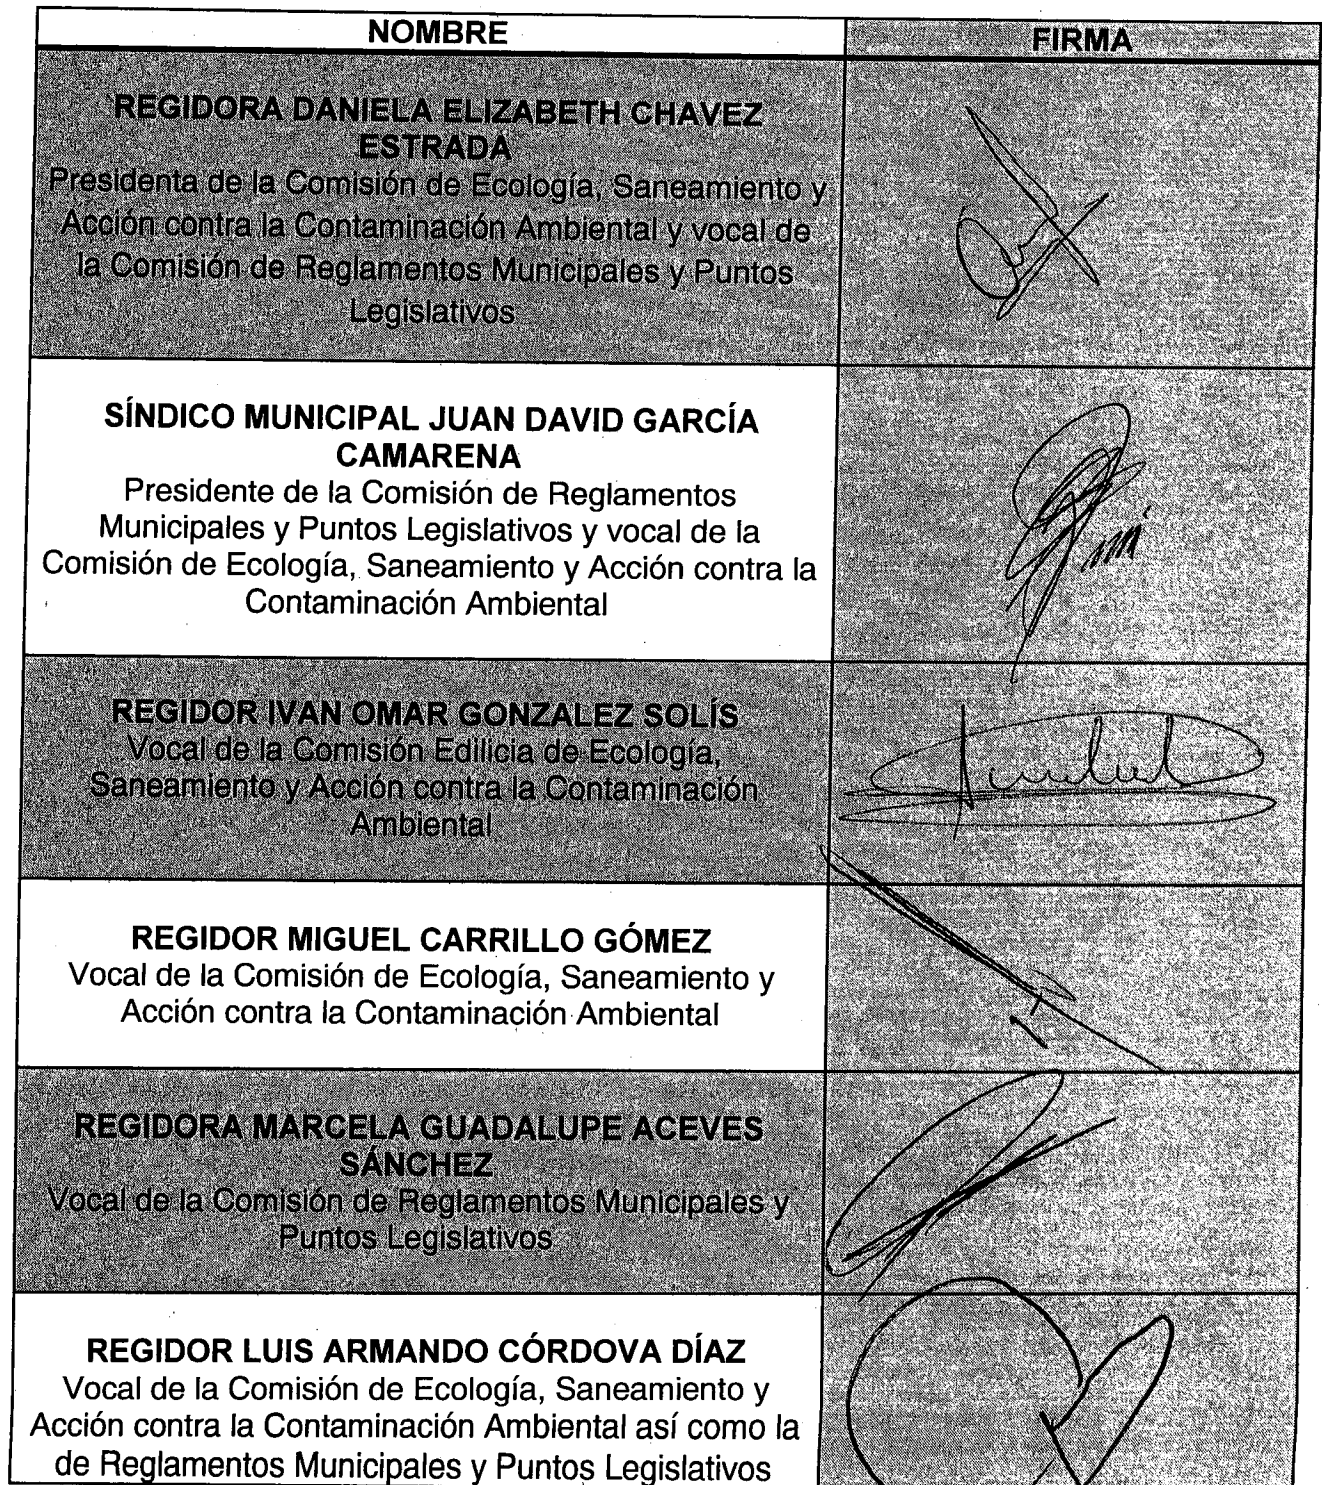 NOMBRE
FIRMA
REGIDORA DANIELA ELIZABETH CHAVEZ
ESTRADA
Presidenta de la Comisión de Ecología, Saneamiento y
Acción contra la Contaminación Ambiental y vocal de
la Comisión de Reglamentos Municipales y Puntos
Legislativos
SÍNDICO MUNICIPAL JUAN DAVID GARCÍA
CAMARENA
Presidente de la Comisión de Reglamentos
Municipales y Puntos Legislativos y vocal de la
Comisión de Ecología, Saneamiento y Acción contra la
Contaminación Ambiental
REGIDOR IVAN OMAR GONZALEZ SOLÍS
Vocal de la Comisión Edilicia de Ecología,
Saneamiento y Acción contra la Contaminación
Ambiental
REGIDOR MIGUEL CARRILLO GÓMEZ
Vocal de la Comisión de Ecología, Saneamiento y
Acción contra la Contaminación Ambiental
REGIDORA MARCELA GUADALUPE ACEVES
SÁNCHEZ
Vocal de la Comisión de Reglamentos Municipales y
Puntos Legislativos
REGIDOR LUIS ARMANDO CÓRDOVA DÍAZ
Vocal de la Comisión de Ecología, Saneamiento y
Acción contra la Contaminación Ambiental así como la
de Reglamentos Municipales y Puntos Legislativos